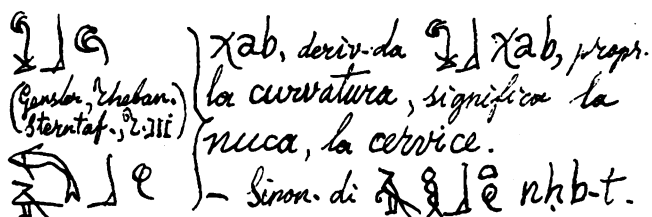 (Gensler, Theban.
Sterntaf., T. III)
χab, deriv. da χab, propr.
la curvatura, significa la
nuca, la cervice.
– Sinon. di nḥb-t.